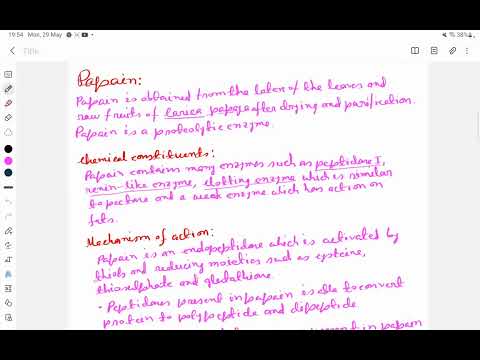 19:54 Mon, 29 May
38%
Title
Papain:
Papain is obtained from the latex of the leaves and
raw fruits of carica papaya after drying and purification.
Papain is a proteolytic enzyme.
Chemical constituents:
Papain contains many enzymes such as peptidase I,
renin-like enzyme, clotting enzyme which is similar
to pectase and a weak enzyme which has action on
fats.
Mechanism of action:
Papain is an endopeptidase which is activated by
thiols and reducing moieties such as cysteine,
thiosulphate and glutathione.
• Peptidases present in papain is able to convert
protein to polypeptide and dipeptide
present in papain